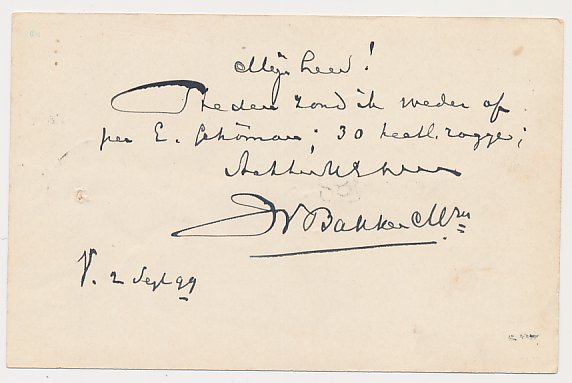 Mijn heer!
Heden zond ik weder af
per E. Schoman; 30 heetl. rogge;
Achtend UEd
JV Bakker Mzn
V. 2 Sept 99